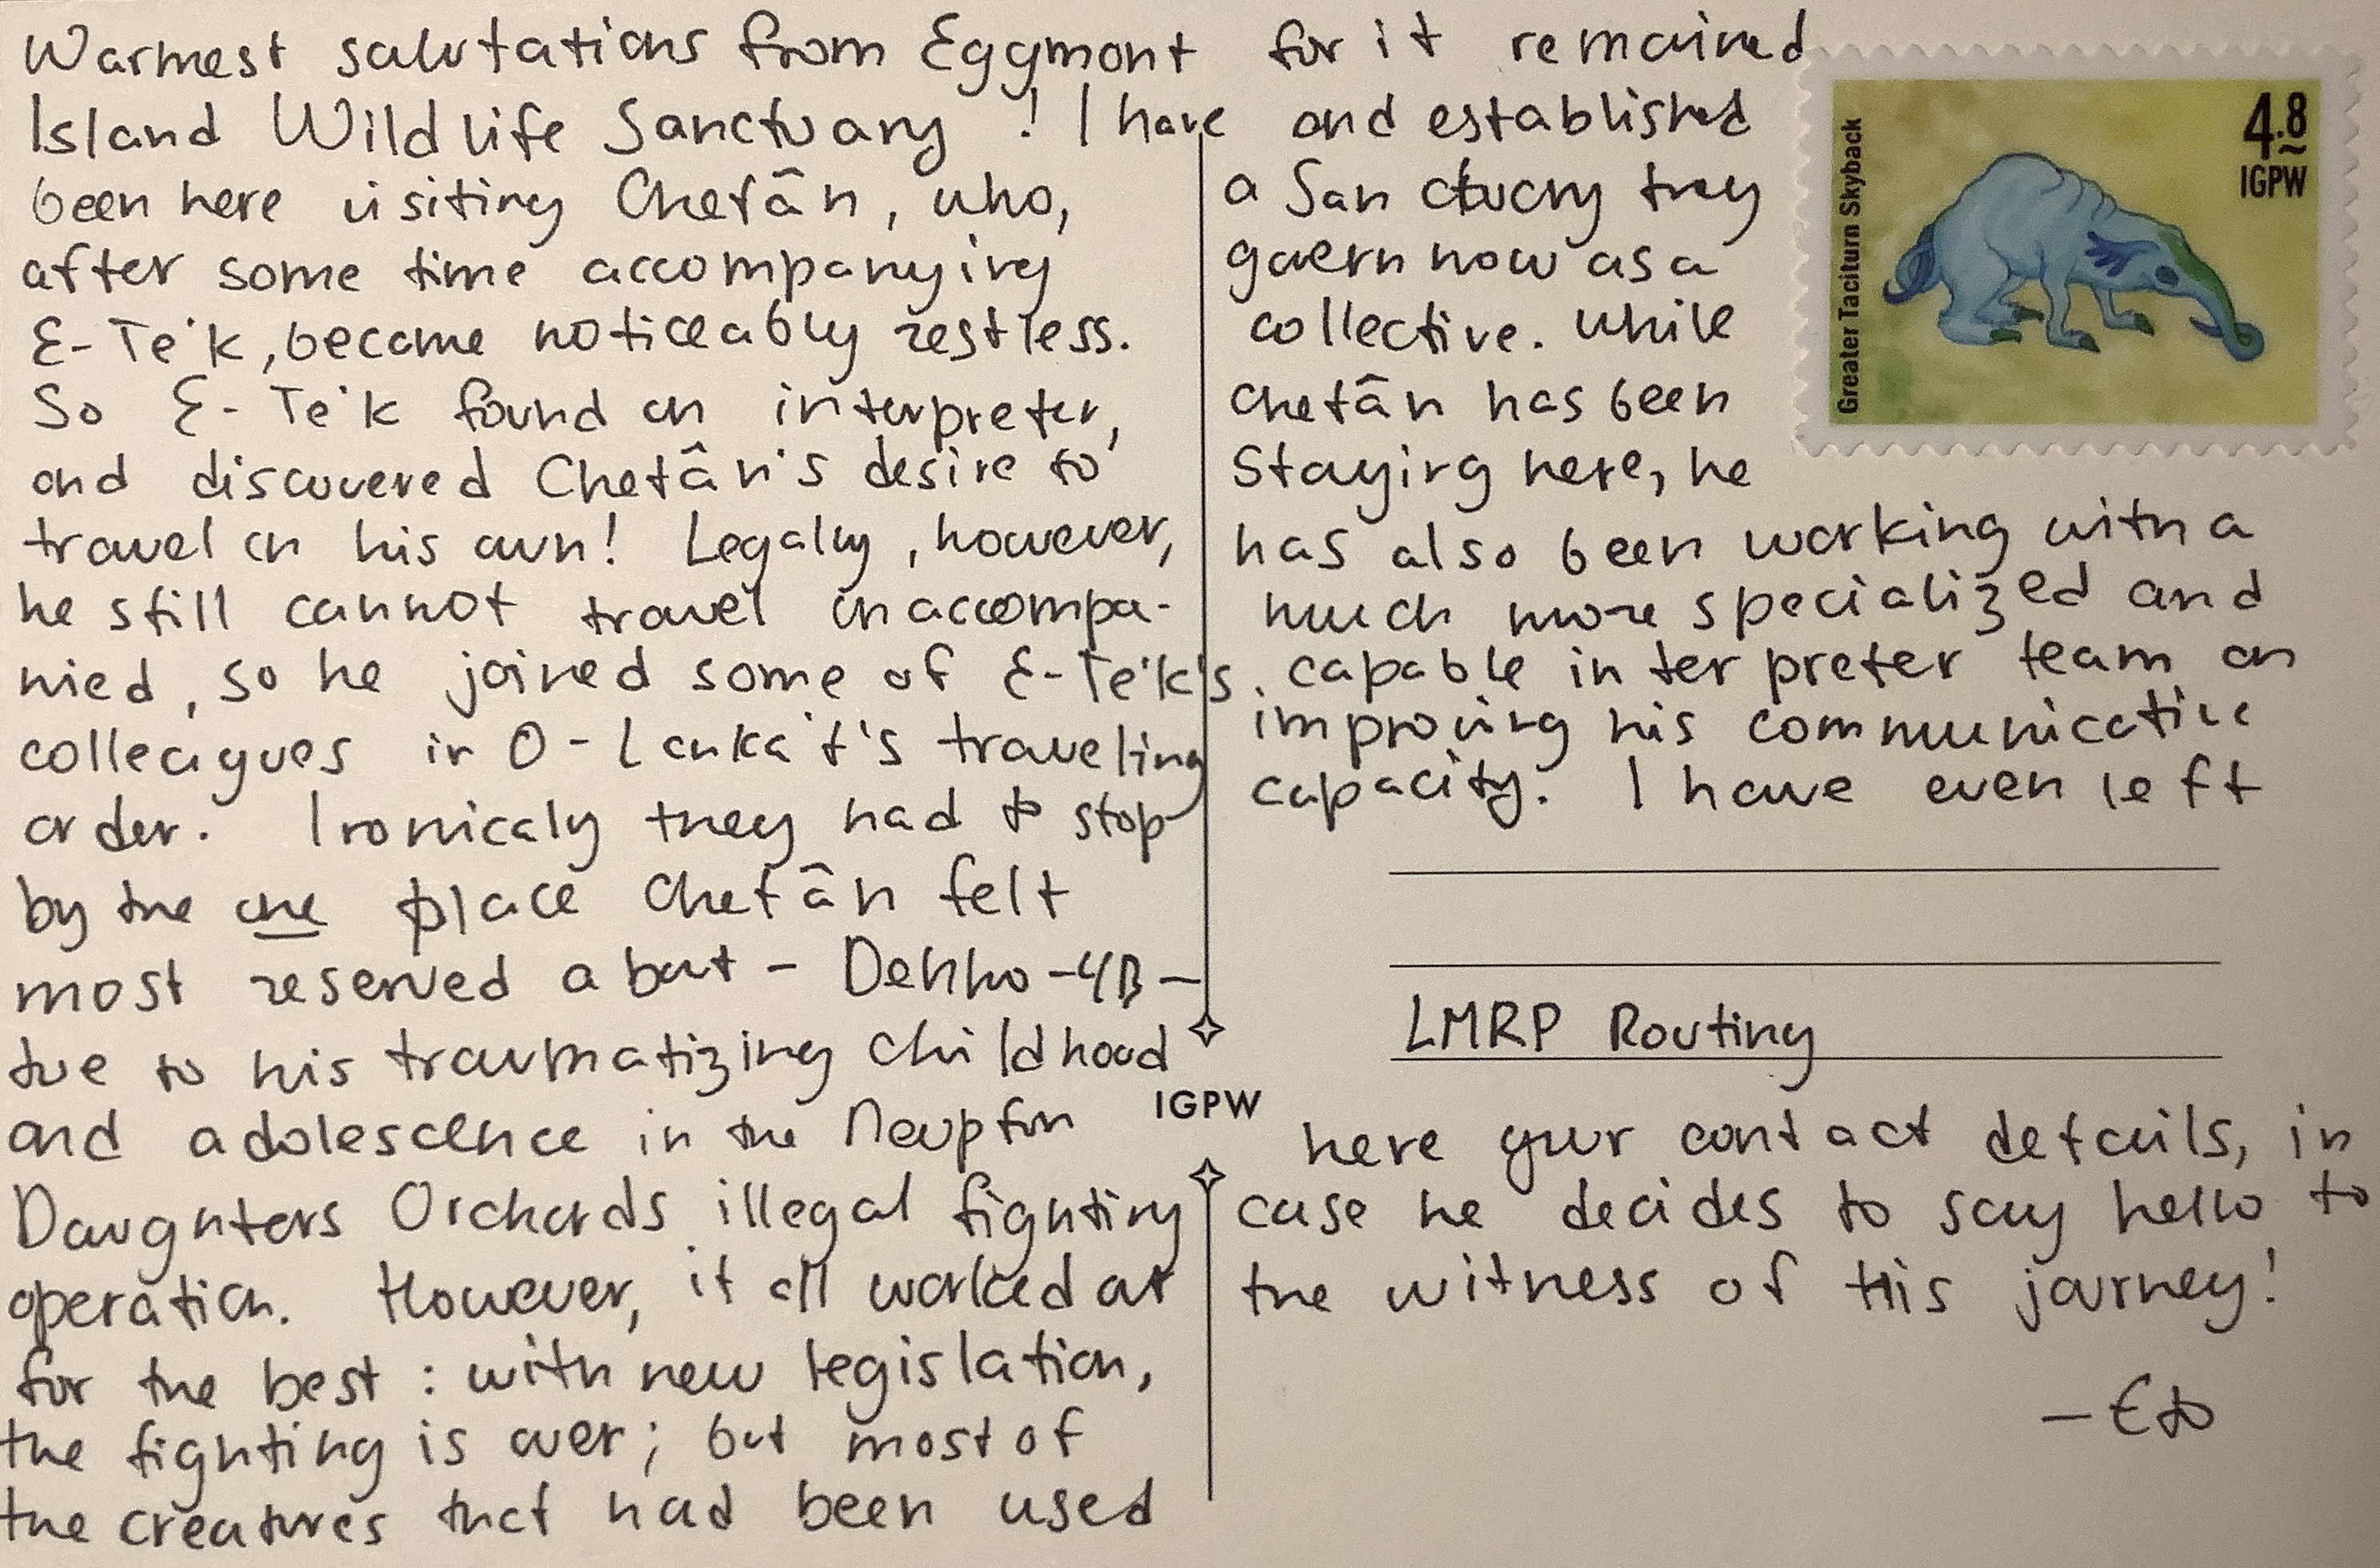 Warmest salutations from Eggmont
Island Wildlife Sanctuary! I have
been here visiting Chetân, who,
after some time accompanying
E-Te'k, became noticeably restless.
So E-Te'k found an interpreter,
and discovered Chetân's desire to
travel on his own! Legally, however,
he still cannot travel unaccompa-
nied, so he joined some of E-Te'k's
colleagues in O-Lanka't's traveling
order. Ironicaly they had to stop
by the one place Chetân felt
most reserved about - Dehho-4B-
due to his traumatizing childhood
and adolescence in the Neupfon
Daughters Orchards illegal fighting
operation. However, it all worked out
for the best: with new legislation,
the fighting is over; but most of
the creatures that had been used
for it remained
and established
a Sanctuary they
govern now as a
collective. While
Chetân has been
staying here, he
has also been working with a
much more specialized and
capable interpreter team on
improving his communicative
capacity. I have even left
here your contact details, in
case he decides to say hello to
the witness of his journey!
- Eto
Greater Taciturn Skyback
4.8
IGPW
LMRP Routing
IGPW